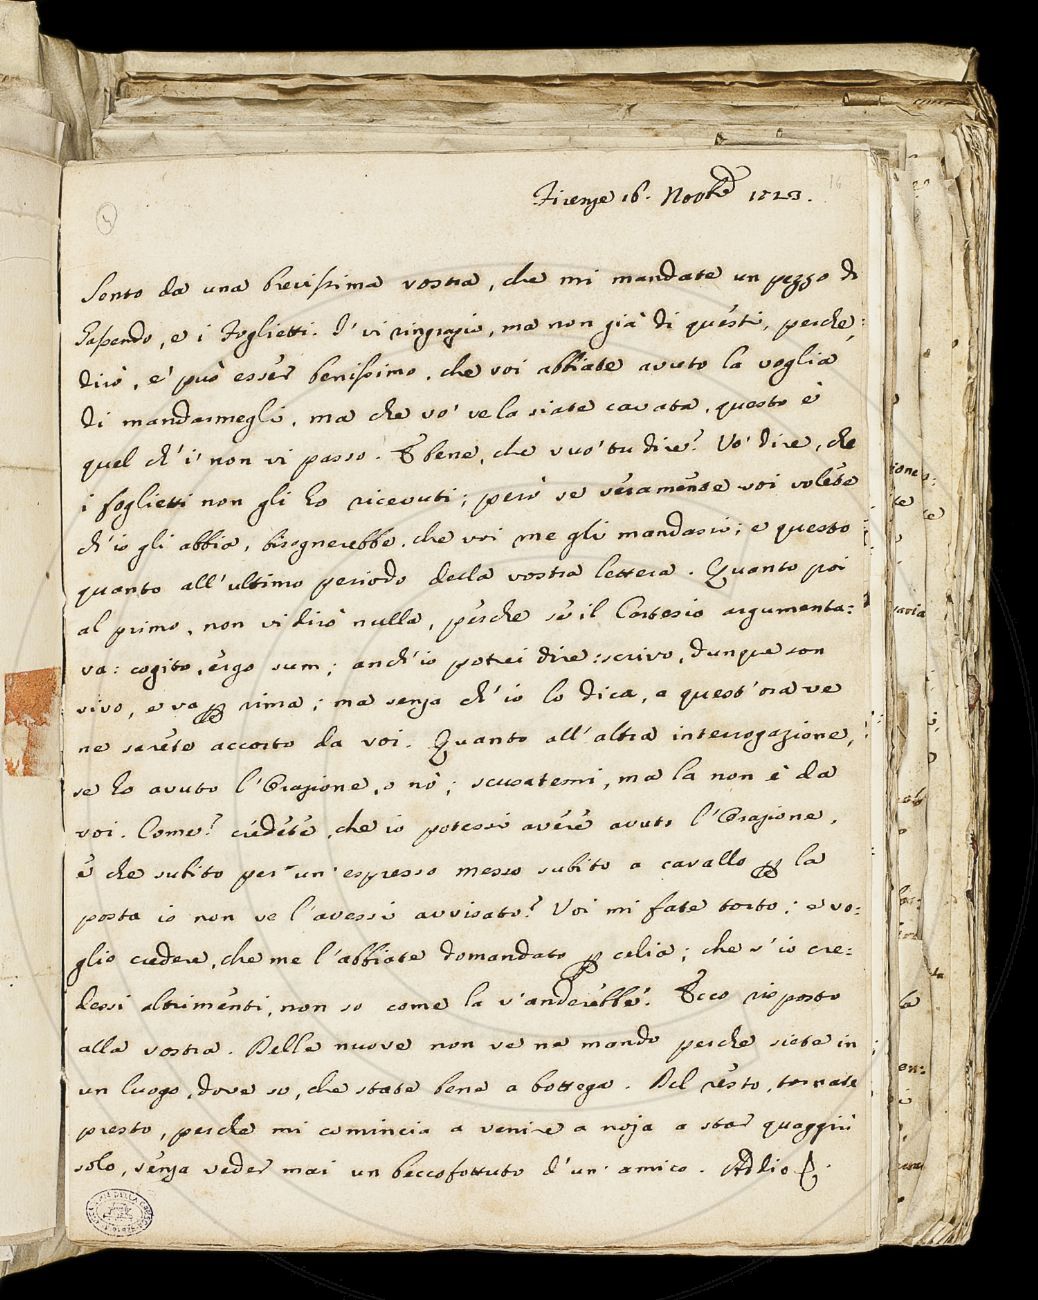 16
4
Firenze 16. Novbre 1723.
Sento da una brevissima vostra, che mi mandate un pezzo di
Capendo, e i Foglietti. I' vi ringrazio, ma non già di questi, perche,
dirò, e' può esser benissimo, che voi abbiate avuto la voglia
di mandarmegli, ma che vo' ve la siate cavata, questo è
quel ch' i' non vi passo. E bene, che vuo' tu dire? Vo' dire, che
i foglietti non gli ho ricevuti; però se veramente voi volete
ch' io gli abbia, bisognerebbe, che voi me gli mandassi; e questo
quanto all' ultimo periodo della vostra lettera. Quanto poi
al primo, non vi dirò nulla, perche se il Cartesio argumenta=
va: cogito, ergo sum; anch' io potrei dire: scrivo, dunque son
vivo, e va p rima; ma senza ch' io lo dica, a quest' ora ve
ne sarete accorto da voi. Quanto all' altra interrogazione,
se ho avuto l' Orazione, o nò; scusatemi, ma la non è da
voi. Come? credete, che io potessi avere avuto l' Orazione,
e che subito per un' espresso messo subito a cavallo p la
posta io non ve l' avessi avvisato? Voi mi fate torto; e vo=
glio credere, che me l' abbiate domandato p celia; che s' io cre=
dessi altrimenti, non so come la s' anderebbe. Ecco risposto
alla vostra. Delle nuove non ve ne mando perche siete in
un luogo, dove so, che state bene a bottega. Del resto, tornate
presto, perche mi comincia a venire a noja a star quaggiù
solo, senza veder mai un beccofottuto d' un' amico. Addio